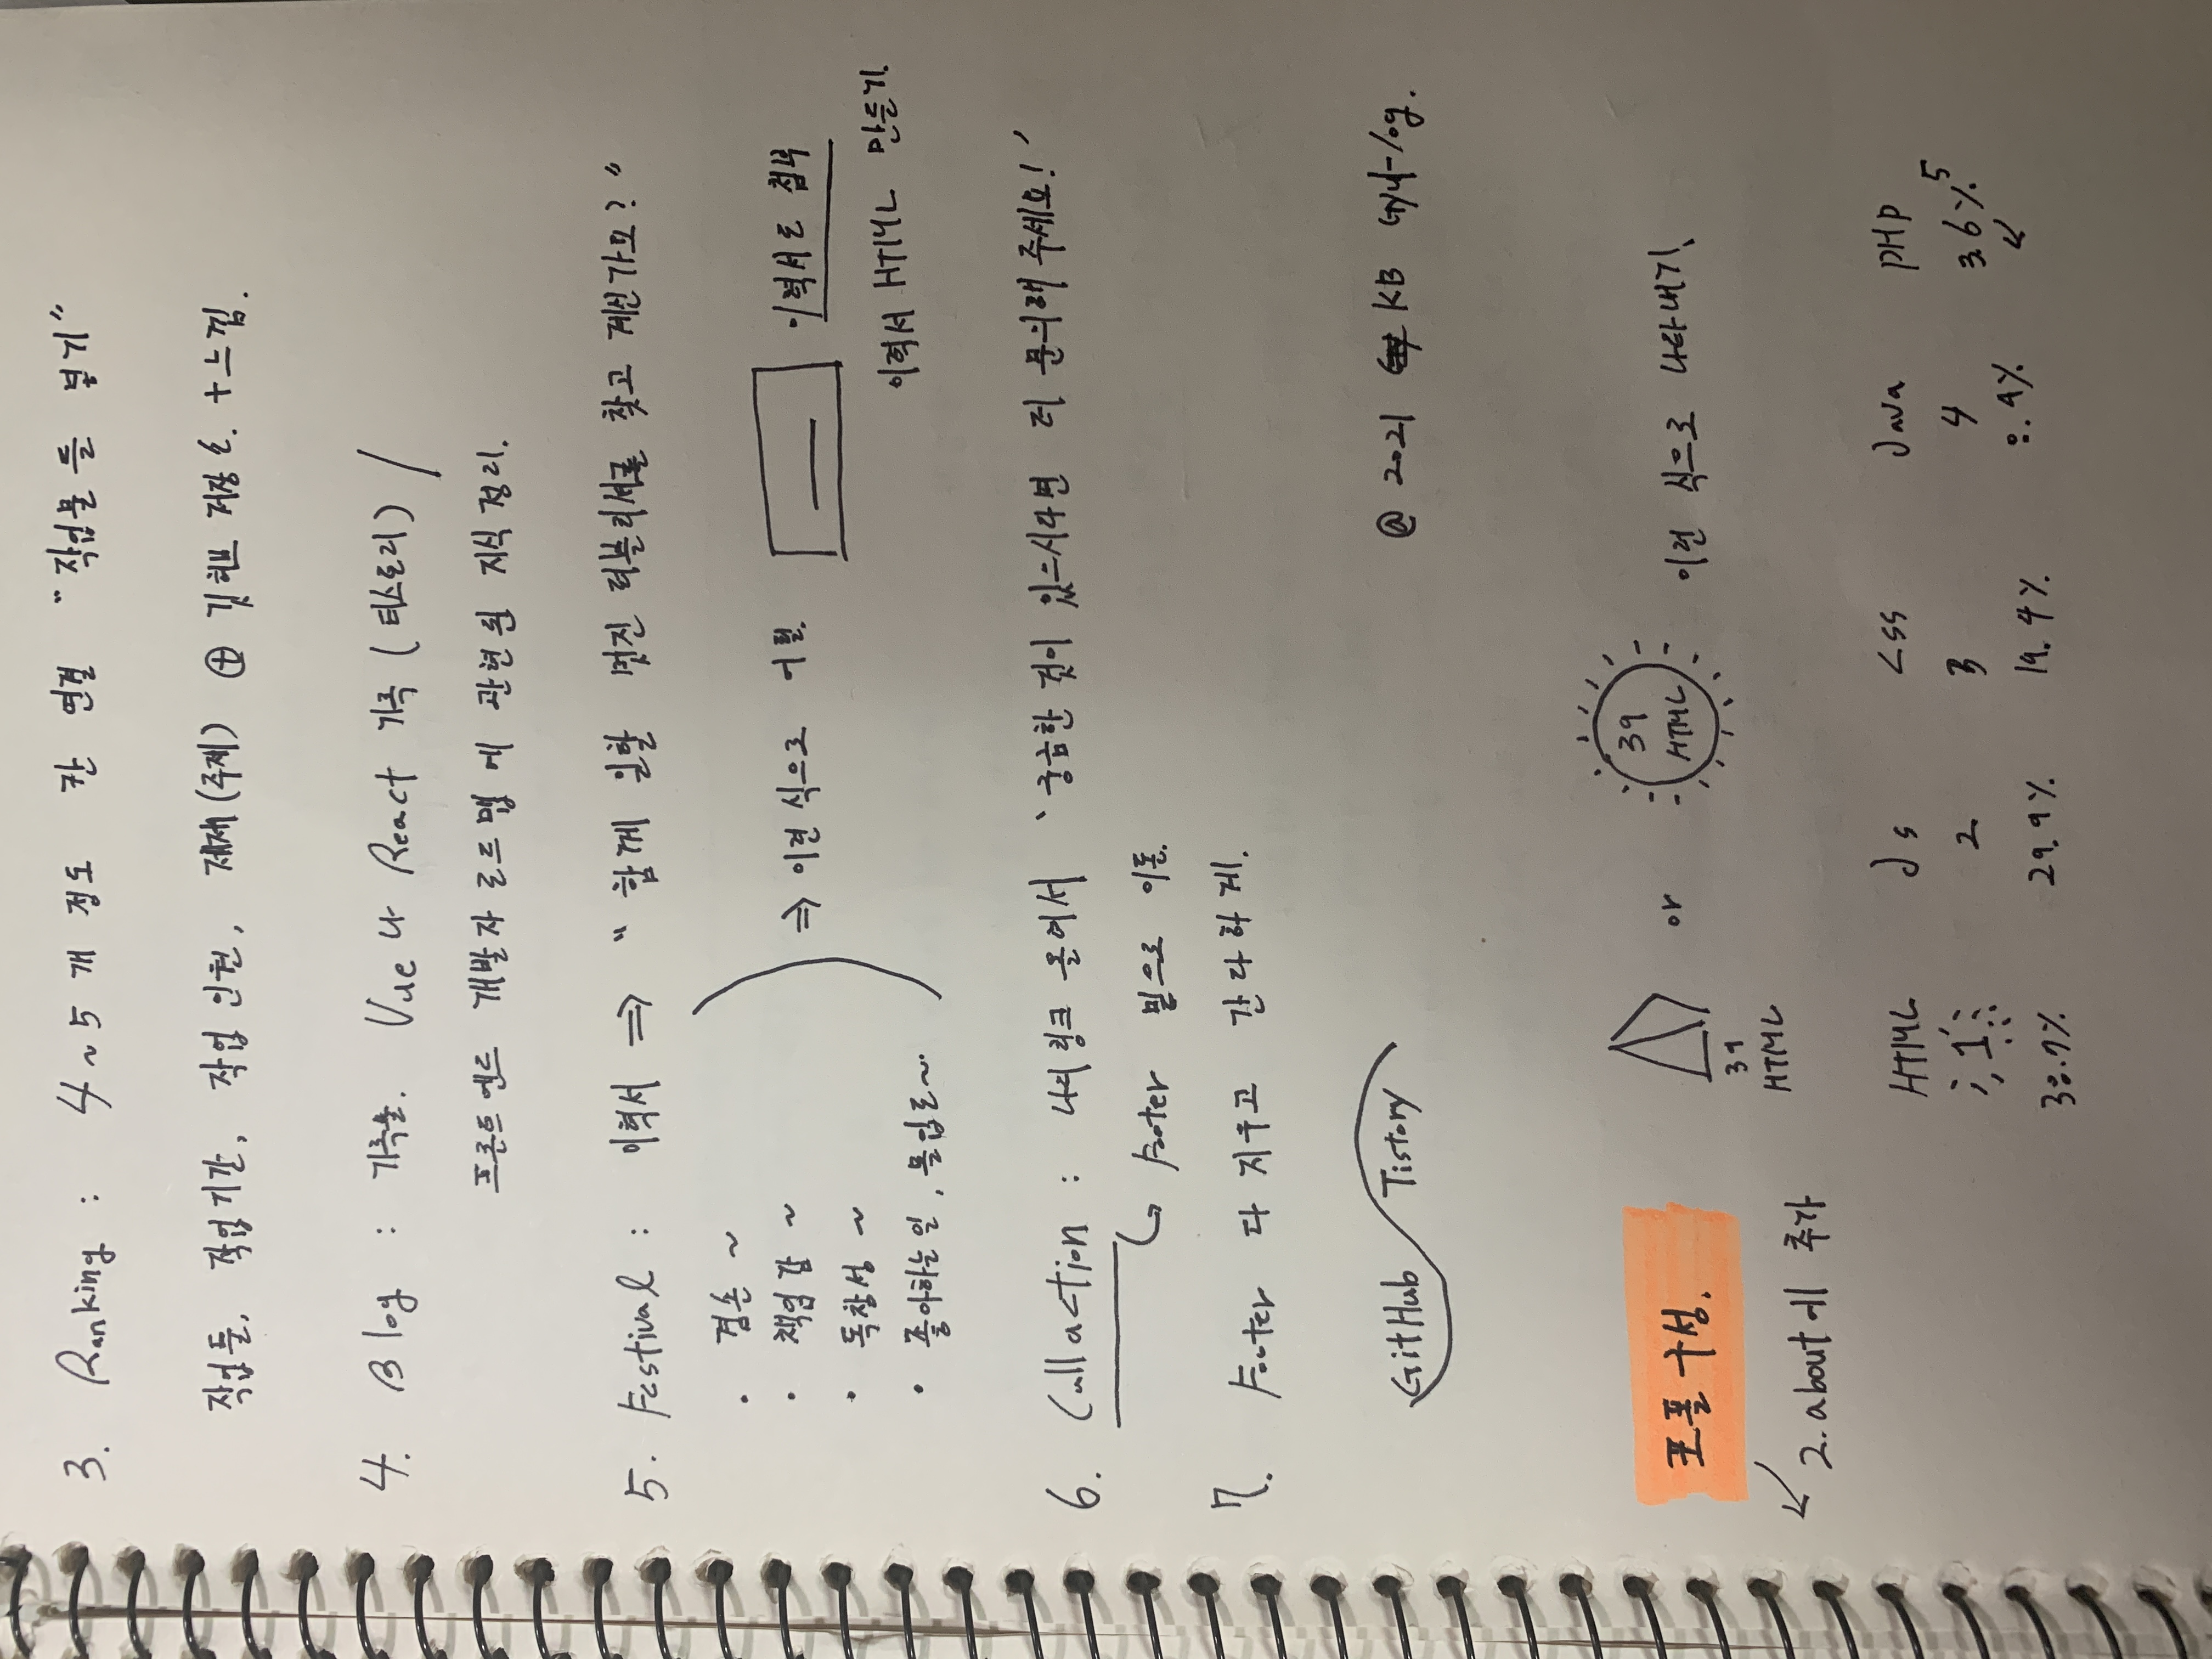 3. Ranking : 4~5개 정도 칸 연결 "작업물들 넣기"
작업물, 작업기간, 작업 인원, 제재(주제) ⊕ 깃허브 저장소. + 느낌.
4. Blog : 기록물. Vue나 React 기록 (티스토리) /
프론트엔드 개발자 로드맵에 관련된 지식 정리.
5. Festival : 이력서 ⇒ "함께 일할 멋진 퍼블리셔를 찾고 계신가요?"
· 겸손 ~
· 책임감 ~
· 독창성 ~
· 좋아하는 일, 몰입도~..
⇒ 이런 식으로 어필.
이력서도 첨부
이력서 HTML 만들기.
6. Call action : 링크 올려서 '궁금한 것이 있으시다면 더 문의해 주세요!'
Footer 밑으로 이동.
7. Footer 다 지우고 간다하게.
GitHub Tistory
@ 2021 KB Gyul-log.
포폴 구성.
39
HTML
or
39
HTML
이런 식으로 나타내기!
2. about에 추가
HTML Js Css Java PHP
1 2 3 4 5
29.9% 19.4% 3.6%